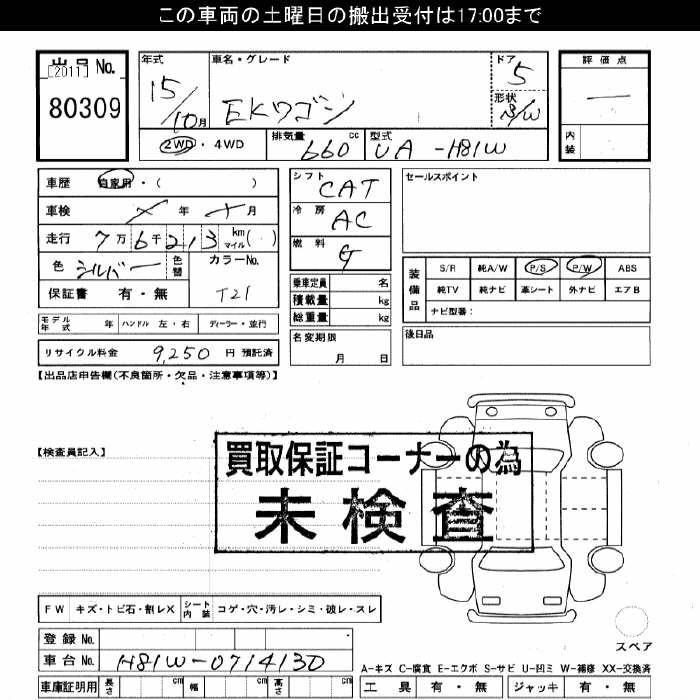 この車両の土曜日の搬出受付は17:00まで
出品 No.
[2011]
80309
年式 15/10月
車名・グレード EKワゴン
ドア 5
形状 S/W
評価点 —
内装
2WD・4WD
排気量 660 cc
型式 UA -H81W
車歴 自家用・( )
車検 メ 年 メ 月
走行 7万6千213 km マイル( )
色 シルバー 色替
カラーNo. T21
保証書 有・無
シフト CAT
冷房 AC
燃料 G
セールスポイント
乗車定員 名
積載量 kg
総重量 kg
装備品
S/R 純A/W P/S P/W ABS
純TV 純ナビ 革シート 外ナビ エアB
ナビ型番：
モデル年式 年 ハンドル 左・右 ディーラー・並行
名変期限 月 日
後日品
リサイクル料金 9,250 円 預託済
【出品店申告欄(不良箇所・欠品・注意事項等)】
【検査員記入】
買取保証コーナーの為
未検査
FW キズ・トビ石・割レX シート内装 コゲ・穴・汚レ・シミ・破レ・スレ
スペア
登録 No.
車台 No. H81W-0714130
A-キズ C-腐食 E-エクボ S-サビ U-凹ミ W-補修 XX-交換済
車庫証明用 長さ cm 幅 cm 高さ cm
工具 有・無 ジャッキ 有・無